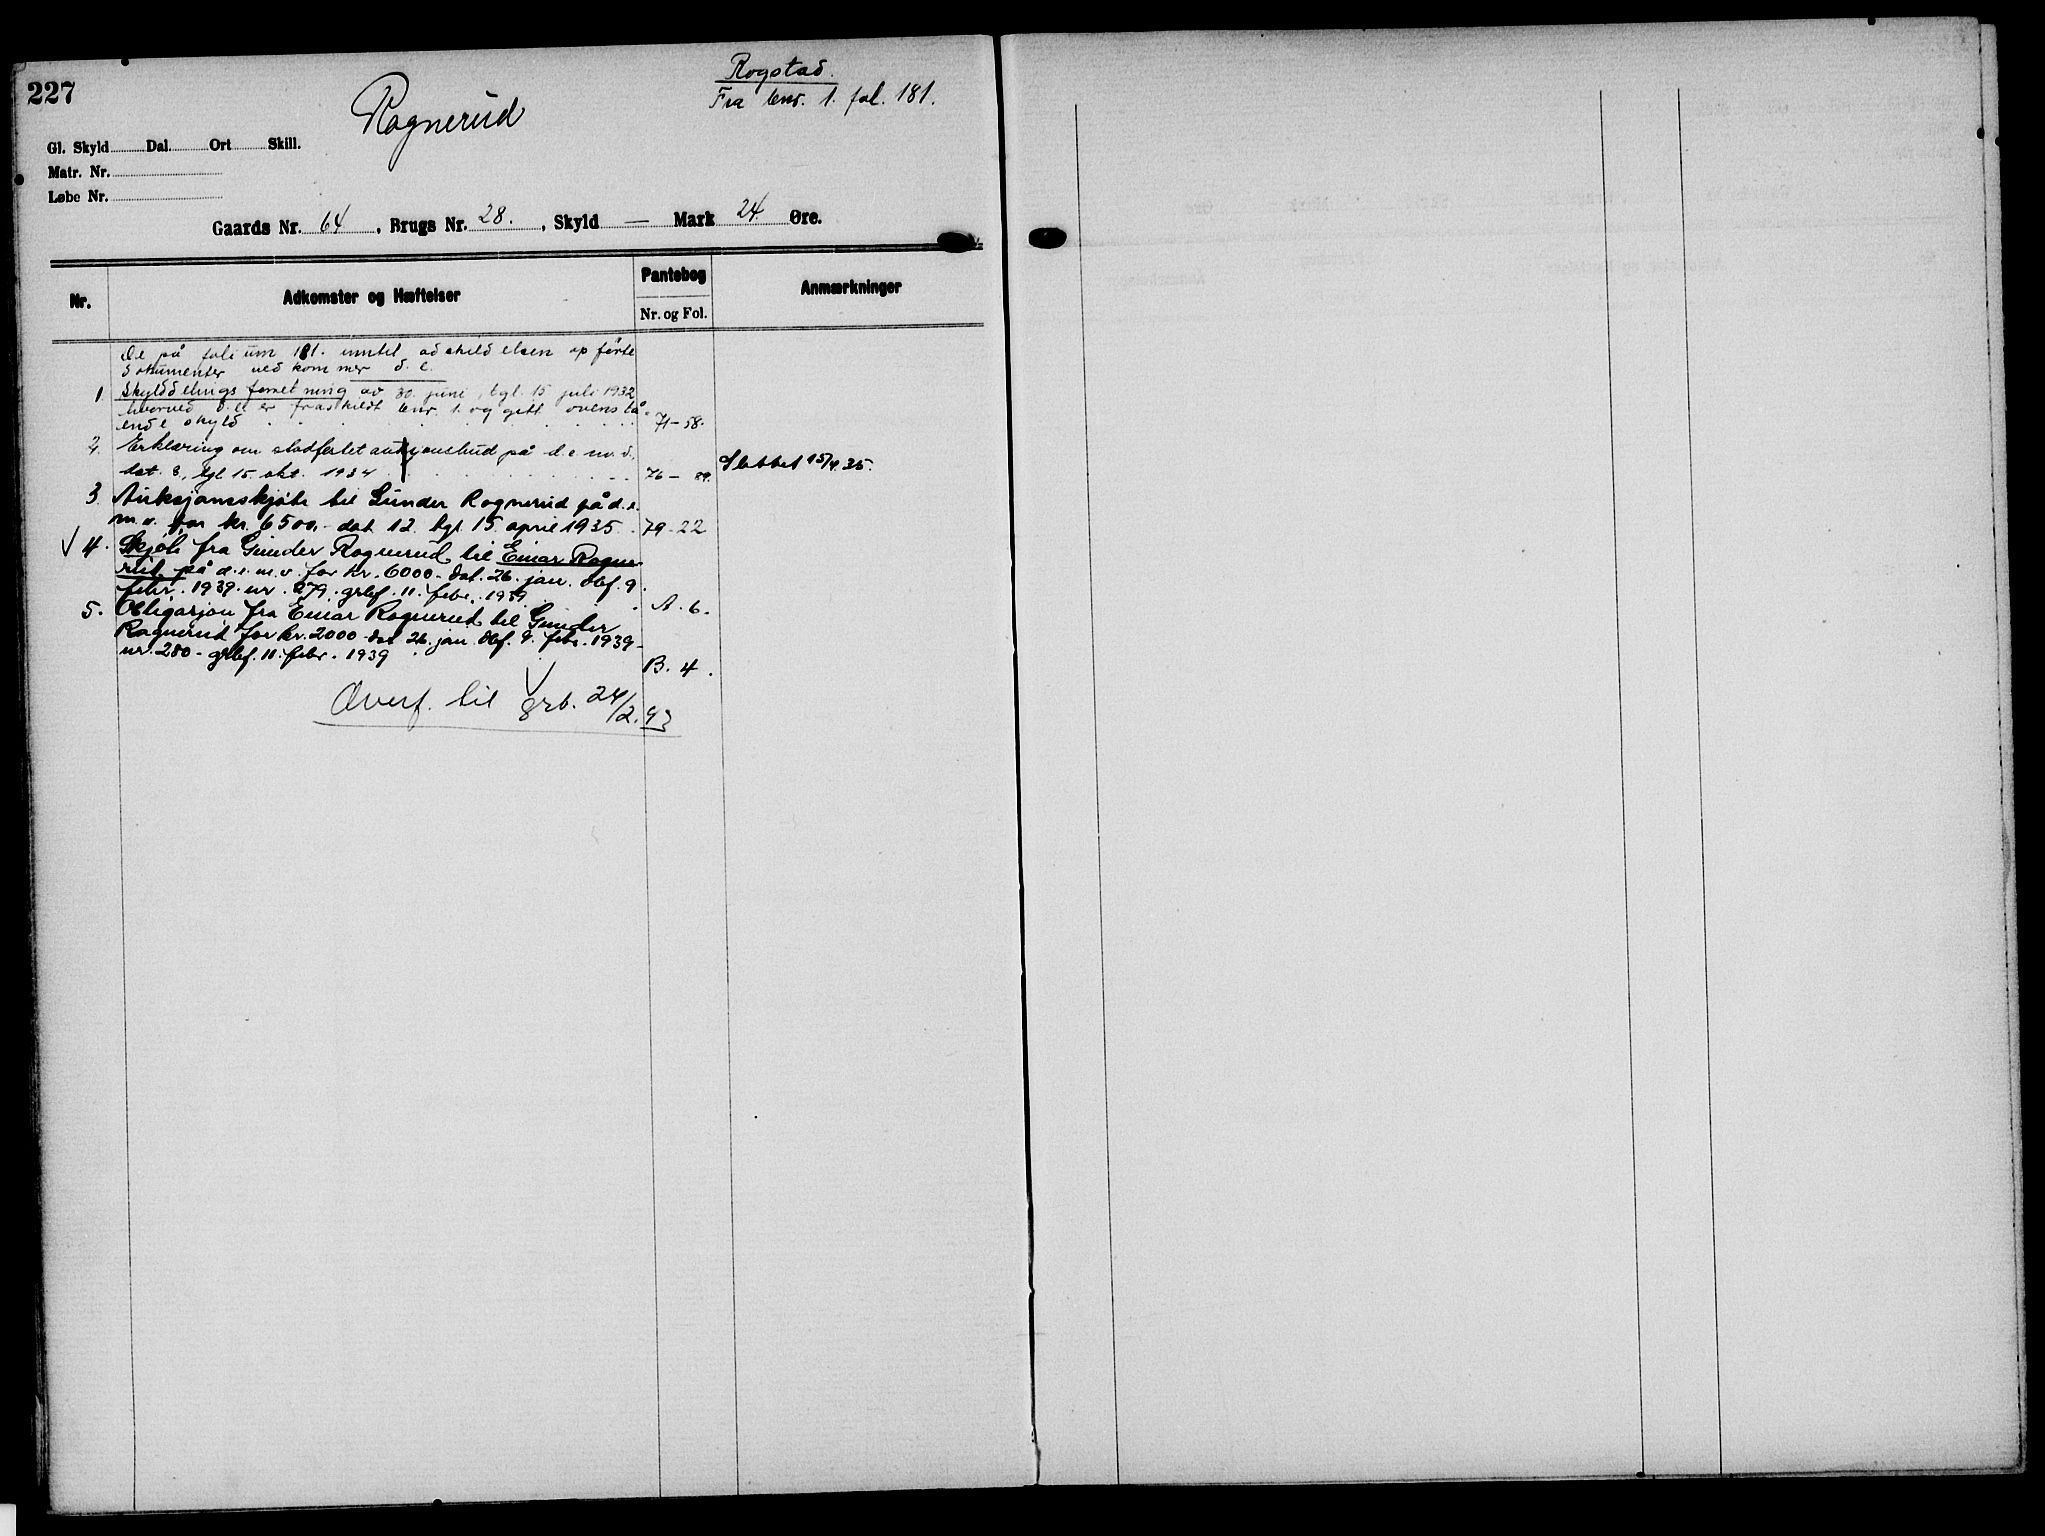 227
Rognerud
Rogstad.
Fra bnr. 1. fol. 181.
Gl. Skyld Dal. Ort Skill.
Matr. Nr.
Løbe Nr.
Gaards Nr. 64, Brugs Nr. 28., Skyld — Mark 24 Øre.
Nr.
Adkomster og Hæftelser
Pantebog
Nr. og Fol.
Anmærkninger
De på folium 181. inntil adskildelsen opførte
dokumenter vedkommer d. e.
1 Skylddelingsforretning av 30. juni, tgl. 15 juli 1932
hvorved d. e. er fraskildt bnr. 1. og gitt ovenstå-
ende skyld 71-58.
2. Erklæring om stadfestet auksjonsbud på d. e. m. v.
dat. 8., tgl 15. okt. 1934 76-89. Slettet 15/4.35.
3. Auksjonsskjøte til Gunder Rognerud på d. e.
m. v. for kr. 6500.- dat 12. tgl. 15. april 1935. 79-22
√ 4. Skjøte fra Gunder Rognerud til Einar Rogne-
rud på d. e. m. v. for kr. 6000- dat. 26. jan. dbf. 9.
febr. 1939. nr. 279. grbf. 11. febr. 1939 A. 6.
5. Obligasjon fra Einar Rognerud til Gunder
Rognerud for kr. 2000- dat 26. jan. dbf. 9. febr. 1939-
nr. 280- grbf. 11. febr. 1939 B. 4.
Overf. til grb. 24/2.43